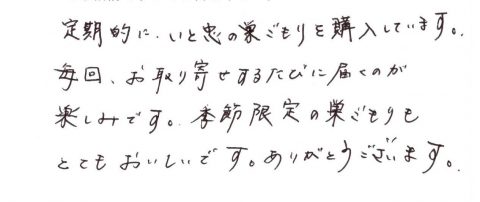 定期的に、いと忠の巣ごもりを購入しています。
毎回、お取り寄せするたびに届くのが
楽しみです。季節限定の巣ごもりも
とてもおいしいです。ありがとうございます。